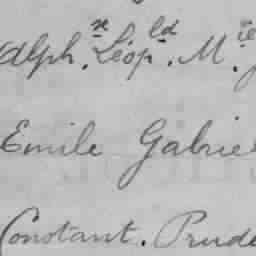 Alph.x Léop.ld M.ie
Emile Gabriel
Constant. Prude